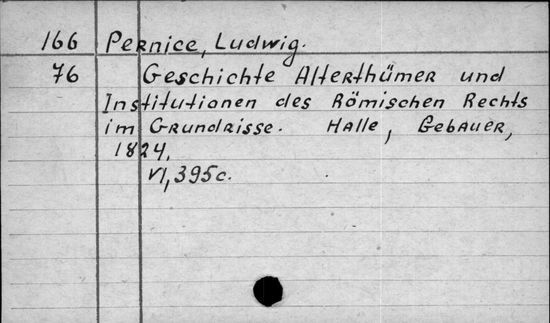 166 Pernice, Ludwig.
76 Geschichte Alterthümer und
Institutionen des Römischen Rechts
im Grundrisse. Halle, Gebauer,
1824.
VI, 395c.